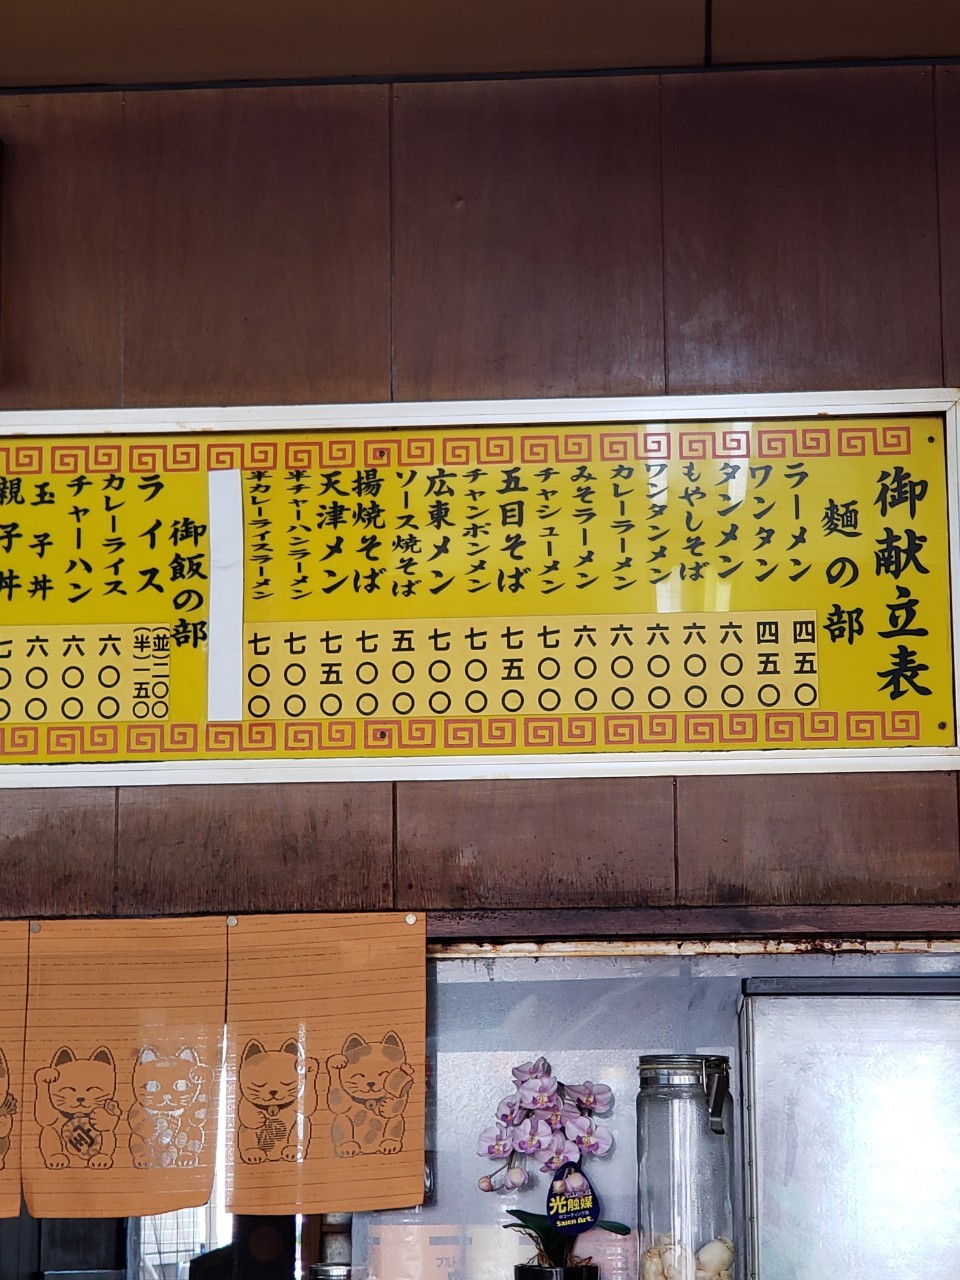 御献立表
麵の部
ラーメン 四五〇
ワンタン 四五〇
タンメン 六〇〇
もやしそば 六〇〇
ワンタンメン 六〇〇
カレーラーメン 六〇〇
みそラーメン 六〇〇
チャシューメン 七〇〇
五目そば 七五〇
チャンポンメン 七〇〇
広東メン 七〇〇
ソース焼そば 五〇〇
揚焼そば 七〇〇
天津メン 七五〇
半チャーハンラーメン 七〇〇
半カレーライスラーメン 七〇〇
御飯の部
ライス (並)二〇〇 (半)一五〇
カレーライス 六〇〇
チャーハン 六〇〇
玉子丼 六〇〇
親子丼 七〇〇
光触媒
Saien Art.